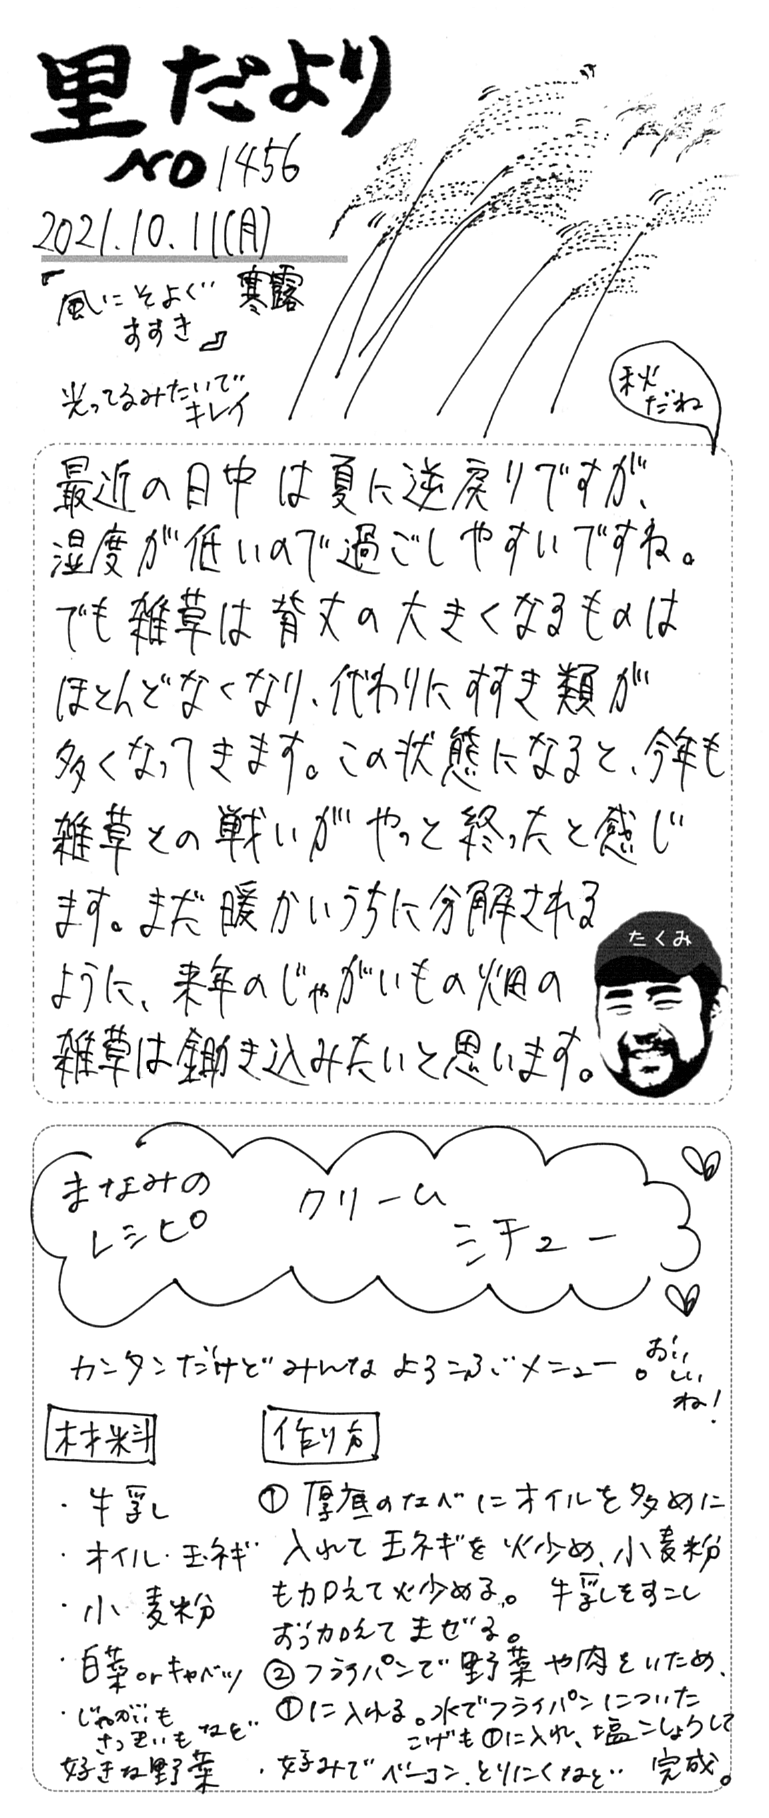 里だより
NO 1456
2021.10.11(月)
『風にそよぐ
すすき』
寒露
光ってるみたいで
キレイ
秋
だね
最近の日中は夏に逆戻りですが、
湿度が低いので過ごしやすいですね。
でも雑草は背丈の大きくなるものは
ほとんどなくなり、代わりにすすき類が
多くなってきます。この状態になると、今年も
雑草との戦いがやっと終ったと感じ
ます。まだ暖かいうちに分解される
ように、来年のじゃがいもの畑の
雑草は鋤き込みたいと思います。
たくみ
まなみの
レシピ
クリーム
シチュー
カンタンだけどみんなよろこぶメニュー。
おいしいね!
材料
・牛乳
・オイル・玉ネギ
・小麦粉
・白菜orキャベツ
・じゃがいも
さつまいもなど
好きな野菜
作り方
① 厚底のなべにオイルを多めに
入れて玉ネギを炒め、小麦粉
も加えて炒める。牛乳をすこし
ずつ加えてまぜる。
② フライパンで野菜や肉をいため、
①に入れる。水でフライパンについた
こげも①に入れ、塩こしょうして
完成。
・好みでベーコン、とりにくなど